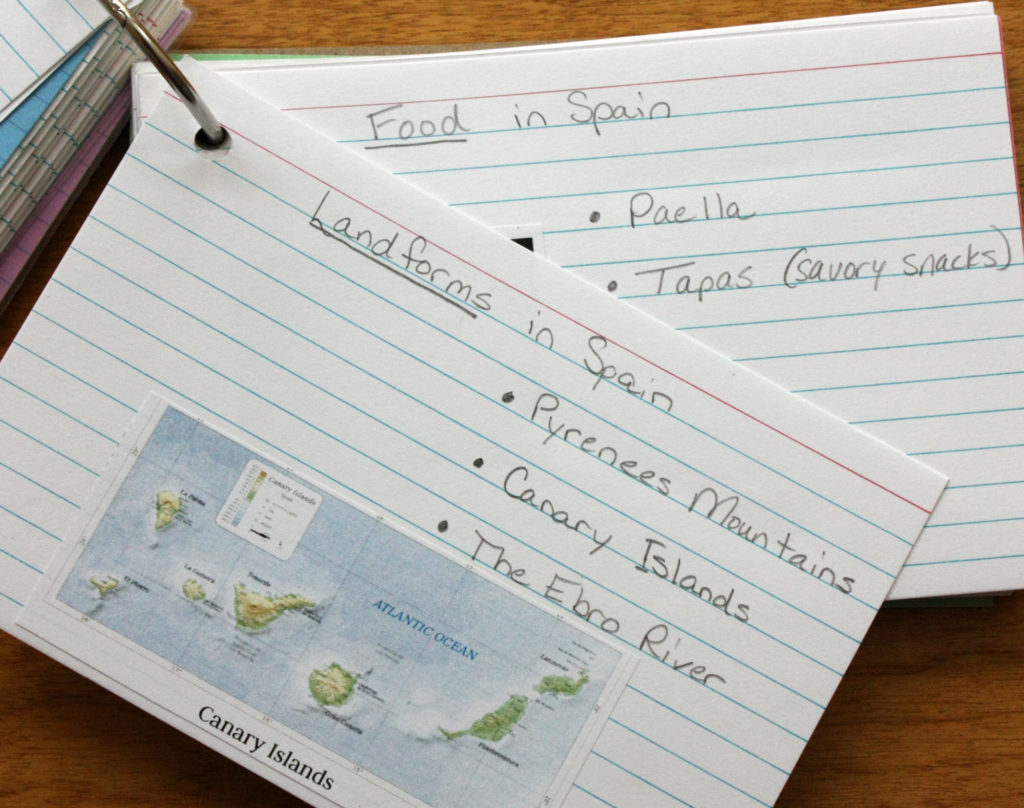 Food in Spain
• Paella
• Tapas (savory snacks)
Landforms in Spain
• Pyrenees Mountains
• Canary Islands
• The Ebro River
Canary Islands
Spain
La Palma
El Hierro
La Gomera
Tenerife
ATLANTIC OCEAN
Gran Canaria
Lanzarote
Fuerteventura
Canary Islands